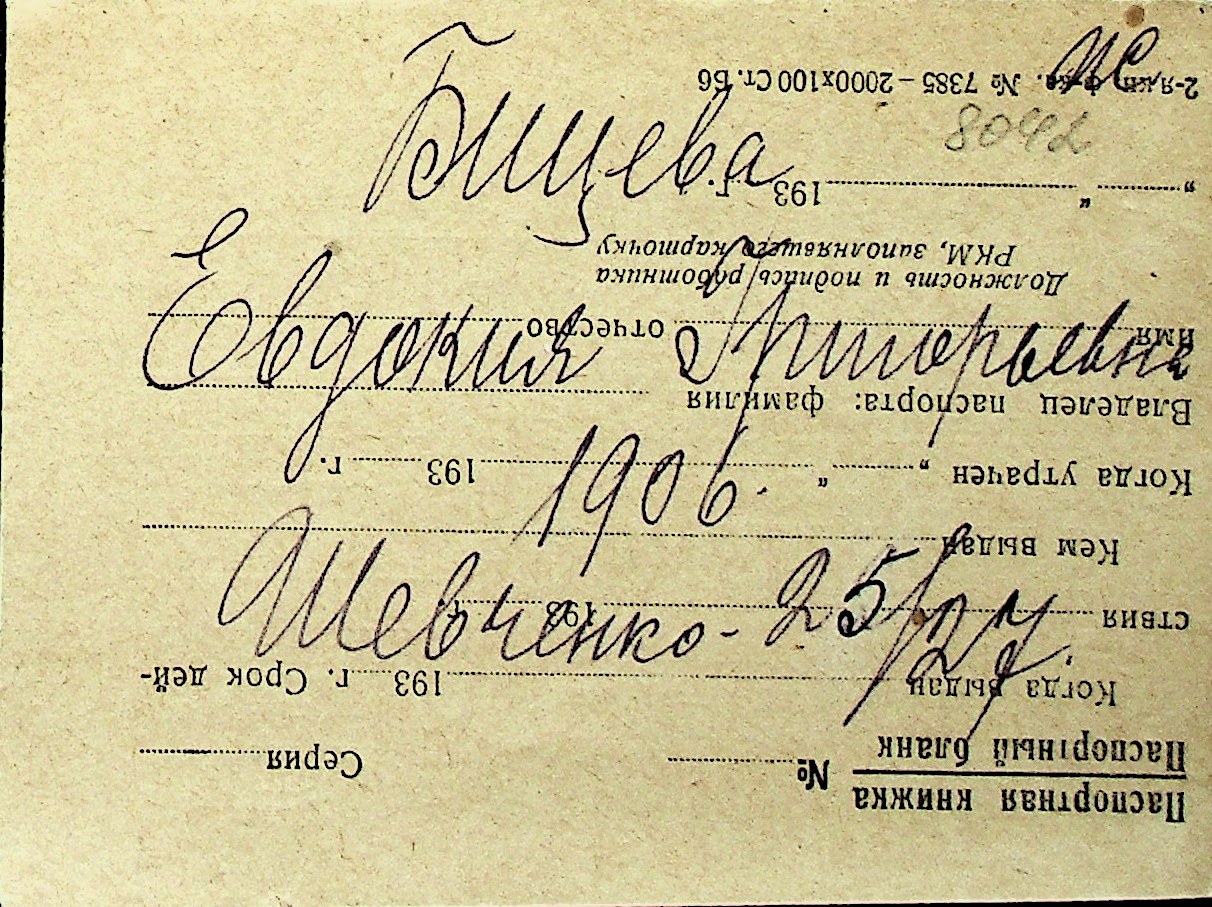 Бищева
Евдокия Григорьевна
1906.
Шевченко - 25/27.
8042
Паспортная книжка
Паспортный бланк
№ Серия
Когда выдан 193 г. Срок дей-
ствия 193
Кем выдан
Когда утрачен „ “ 193 г.
Владелец паспорта: фамилия
имя отчество
Должность и подпись работника
РКМ, заполнявшего карточку
„ “ 193 г.
№ 7385 — 2000х100 Ст. Б6